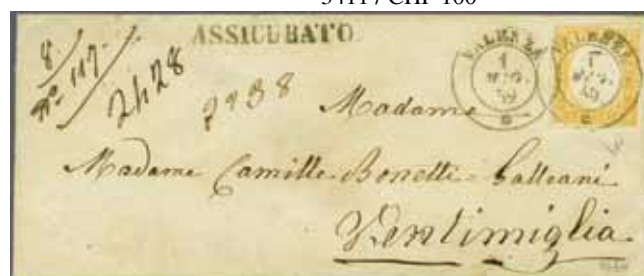 5411 / CHF 100
ASSICURATO
8.
No. 117.
2428
2938
VALENZA
1
59
VALENZA
1
59
Madame
Madame Camille Bonetti - Galleani
Ventimiglia